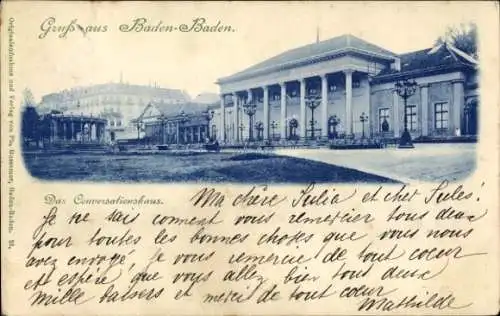 Gruß aus Baden-Baden.
Originalaufnahme und Verlag von
Baden-Baden.
Das Conversationshaus.
Ma chère Julia et cher Jules!
Je ne sais comment vous remerier tous deux
pour toutes les bonnes choses que vous nous
avez envoyé; Je vous remercie de tout cœur
et espère que vous allez bien tous deux
Mille baisers et merci de tout cœur
Mathilde